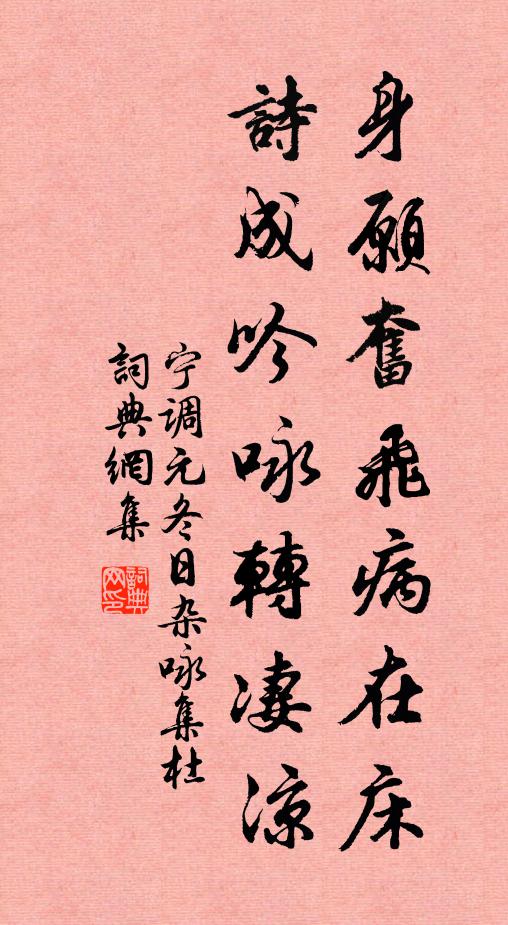 身願奮飛病在床
詩成吟咏轉凄涼
宁调元冬日杂咏集杜
詞典網集
詞典网印